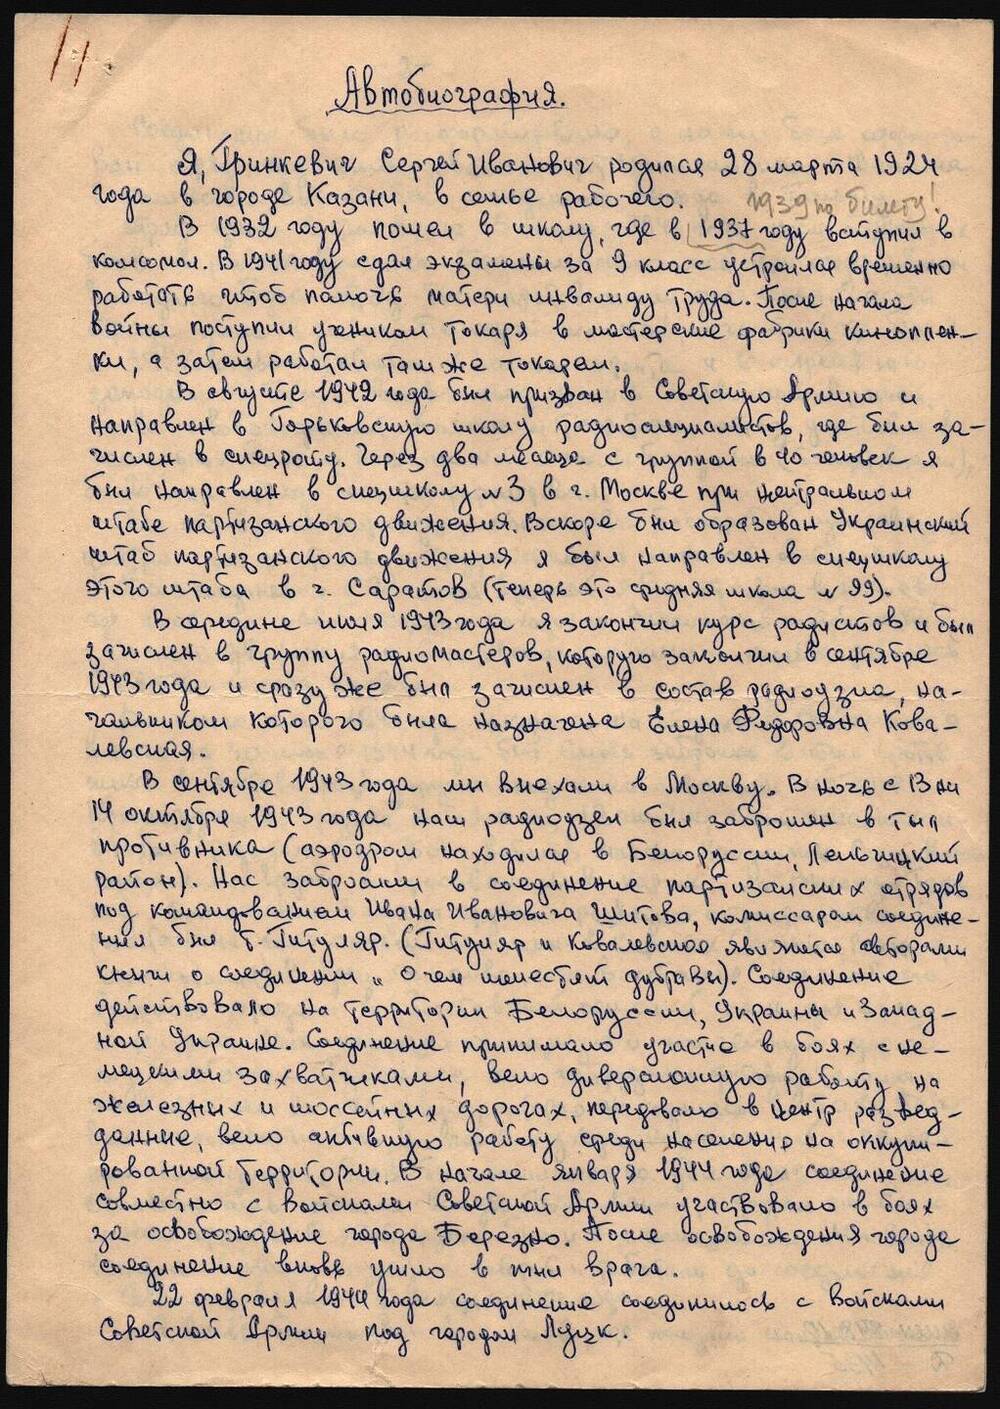 Автобиография.
Я, Гринкевич Сергей Иванович родился 28 марта 1924
года в городе Казани, в семье рабочего.
1939 по билету!
В 1932 году пошел в школу, где в 1937 году вступил в
комсомол. В 1941 году сдал экзамены за 9 класс устроился временно
работать чтоб помочь матери инвалиду труда. После начала
войны поступил учеником токаря в мастерские фабрики киноплен-
ки, а затем работал там же токарем.
В августе 1942 года был призван в Советскую Армию и
направлен в Горьковскую школу радиоспециалистов, где был за-
числен в спецроту. Через два месяца с группой в 40 человек я
был направлен в спецшколу №3 в г. Москве при центральном
штабе партизанского движения. Вскоре был образован Украинский
штаб партизанского движения я был направлен в спецшколу
этого штаба в г. Саратов (теперь это средняя школа № 99).
В середине июля 1943 года я закончил курс радистов и был
зачислен в группу радиомастеров, которую закончил в сентябре
1943 года и сразу же был зачислен в состав радиоузла, на-
чальником которого была назначена Елена Федоровна Кова-
левская.
В сентябре 1943 года мы выехали в Москву. В ночь с 13 на
14 октября 1943 года наш радиоузел был заброшен в тыл
противника (аэродром находился в Белоруссии, Лельчицкий
район). Нас забросили в соединение партизанских отрядов
под командованием Ивана Ивановича Шитова, комиссаром соедине-
ния был т. Гитуляр. (Гитуляр и Ковалевская являются авторами
книги о соединении „О чем шелестят дубравы). Соединение
действовало на территории Белоруссии, Украины и Запад-
ной Украине. Соединение принимало участие в боях с не-
мецкими захватчиками, вело диверсионную работу на
железных и шоссейных дорогах, передовало в центр развед-
данные, вело активную работу среди населения на оккупи-
рованной территории. В начале января 1944 года соединение
совместно с войсками Советской Армии участвовало в боях
за освобождение города Березно. После освобождения города
соединение вновь ушло в тыл врага.
22 февраля 1944 года соединение соединилось с войсками
Советской Армии под городом Луцк.